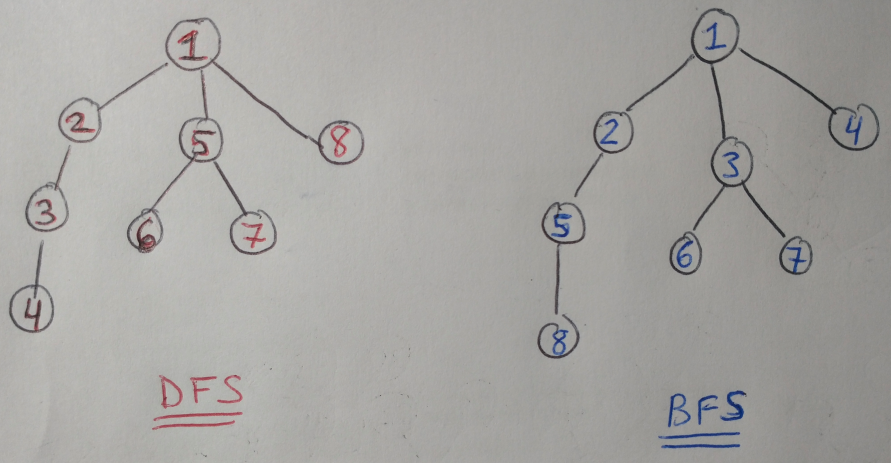 1
2
5
8
3
6
7
4
DFS
1
2
3
4
5
6
7
8
BFS